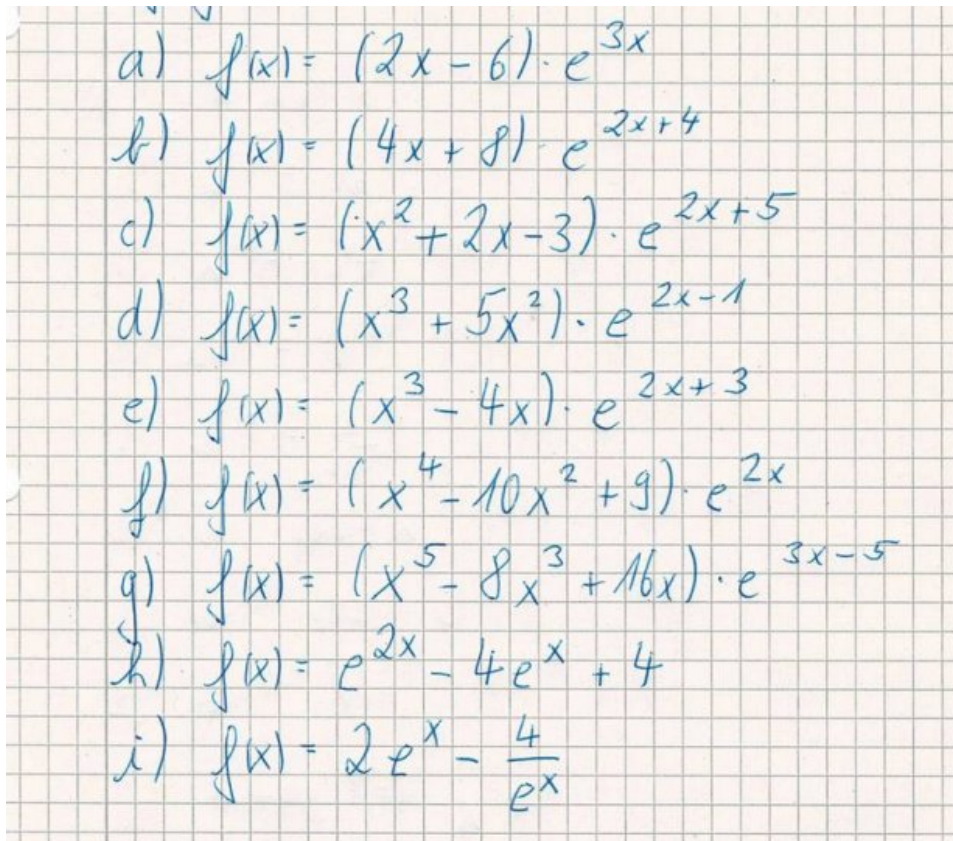 a) f(x) = (2x - 6) · e^{3x}
b) f(x) = (4x + 8) · e^{2x+4}
c) f(x) = (x² + 2x - 3) · e^{2x+5}
d) f(x) = (x³ + 5x²) · e^{2x-1}
e) f(x) = (x³ - 4x) · e^{2x+3}
f) f(x) = (x⁴ - 10x² + 9) · e^{2x}
g) f(x) = (x⁵ - 8x³ + 16x) · e^{3x-5}
h) f(x) = e^{2x} - 4e^{x} + 4
i) f(x) = 2e^{x} - \frac{4}{e^{x}}